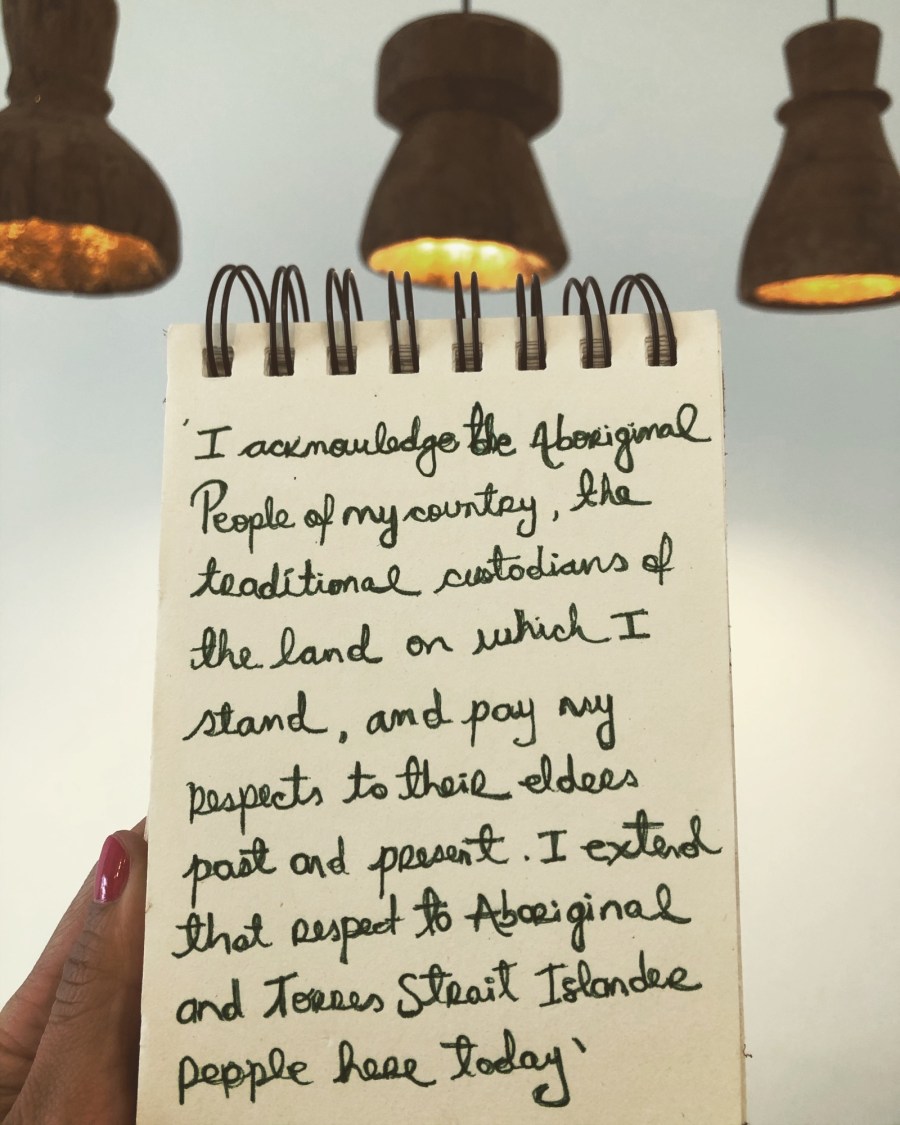 'I acknowledge the Aboriginal
People of my country, the
traditional custodians of
the land on which I
stand, and pay my
respects to their elders
past and present. I extend
that respect to Aboriginal
and Torres Strait Islander
people here today'